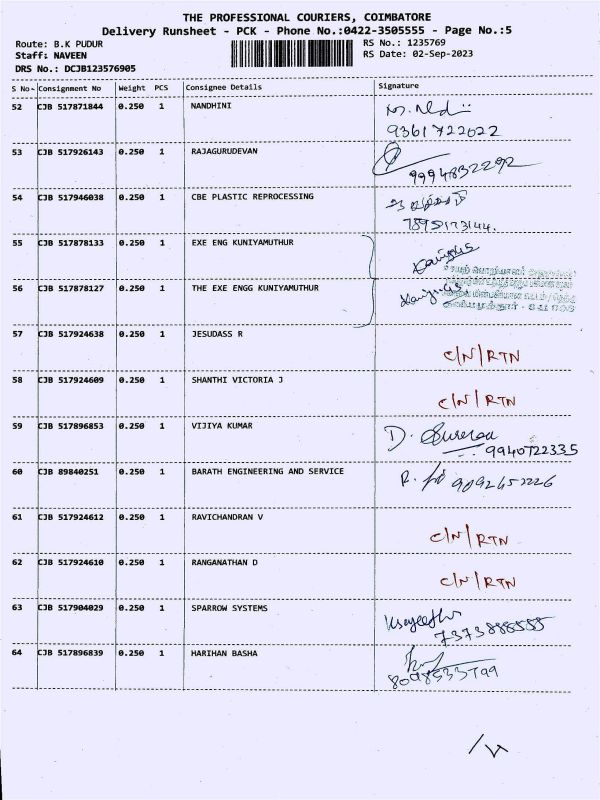 THE PROFESSIONAL COURIERS, COIMBATORE
Delivery Runsheet - PCK - Phone No.:0422-3505555 - Page No.:5
Route: B.K PUDUR RS No.: 1235769
Staff: NAVEEN RS Date: 02-Sep-2023
DRS No.: DCJB123576905
S No Consignment No Weight PCS Consignee Details Signature
52 CJB 517871844 0.250 1 NANDHINI
9361722022
53 CJB 517926143 0.250 1 RAJAGURUDEVAN
9994832292
54 CJB 517946038 0.250 1 CBE PLASTIC REPROCESSING
7895173144.
55 CJB 517878133 0.250 1 EXE ENG KUNIYAMUTHUR
56 CJB 517878127 0.250 1 THE EXE ENGG KUNIYAMUTHUR
57 CJB 517924638 0.250 1 JESUDASS R
C/N/RTN
58 CJB 517924609 0.250 1 SHANTHI VICTORIA J
C/N/RTN
59 CJB 517896853 0.250 1 VIJIYA KUMAR D.
9940722335
60 CJB 89840251 0.250 1 BARATH ENGINEERING AND SERVICE R. 9092452226
61 CJB 517924612 0.250 1 RAVICHANDRAN V
C/N/RTN
62 CJB 517924610 0.250 1 RANGANATHAN D
C/N/RTN
63 CJB 517904029 0.250 1 SPARROW SYSTEMS
7373888555
64 CJB 517896839 0.250 1 HARIHAN BASHA
8098533799